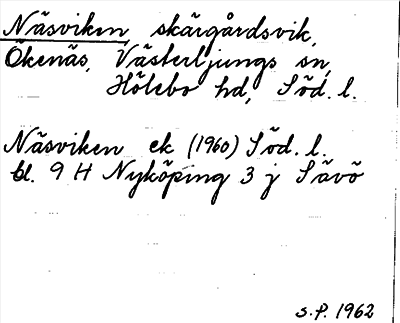 Näsviken, skärgårdsvik,
Ökenäs, Västerljungs sn,
Hölebo hd, Söd. l.
Näsviken ek (1960) Söd. l.
bl. 9 H Nyköping 3 j Sävö
S.P. 1962